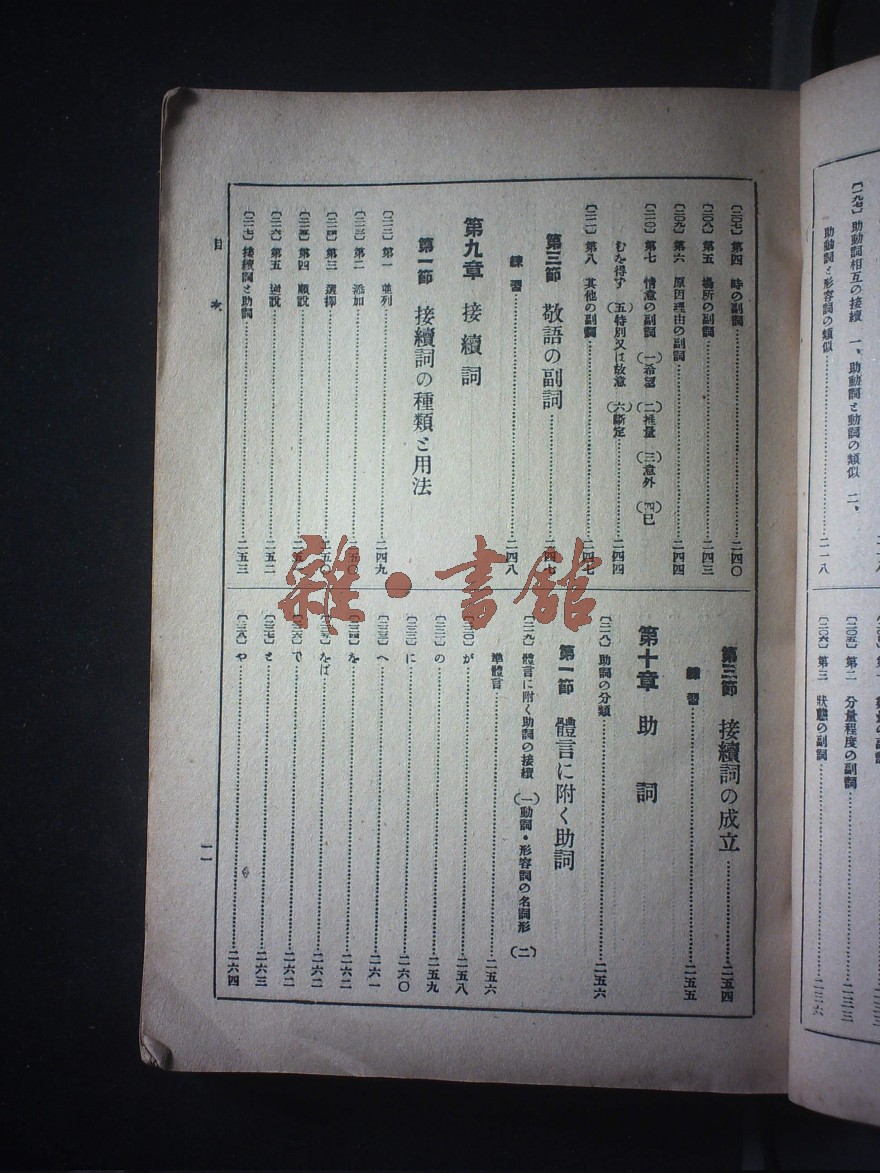 〔二〇七〕 第四 時の副詞……二四〇
〔二〇八〕 第五 場所の副詞……二四三
〔二〇九〕 第六 原因理由の副詞……二四四
〔二一〇〕 第七 情意の副詞 (一)希望 (二)推量 (三)意外 (四)已
むを得ず (五)特別又は故意 (六)斷定……二四四
〔二一一〕 第八 其他の副詞……二四七
第三節 敬語の副詞……二四七
練習……二四八
第九章 接續詞
第一節 接續詞の種類と用法
〔二一二〕 第一 並列……二四九
〔二一三〕 第二 添加……二五〇
〔二一四〕 第三 選擇……二五〇
〔二一五〕 第四 順說
〔二一六〕 第五 逆說……二五二
〔二一七〕 接續詞と助詞……二五三
第三節 接續詞の成立……二五四
練習……二五五
第十章 助詞
〔二一八〕 助詞の分類……二五六
第一節 體言に附く助詞
〔二一九〕 體言に附く助詞の接續 (一)動詞・形容詞の名詞形 (二)
準體言……二五六
〔二二〇〕が……二五八
〔二二一〕の……二五九
〔二二二〕に……二六〇
〔二二三〕へ……二六一
〔二二四〕を……二六二
〔二二五〕をば……二六二
〔二二六〕で……二六二
〔二二七〕と……二六三
〔二二八〕や……二六四
目次
一一
〔一九七〕 助動詞相互の接續 一、助動詞と動詞の類似 二、
助動詞と形容詞の類似……二一八
〔二〇五〕 第二 分量程度の副詞……二三三
〔二〇六〕 第三 狀態の副詞……二三六
雜・書館